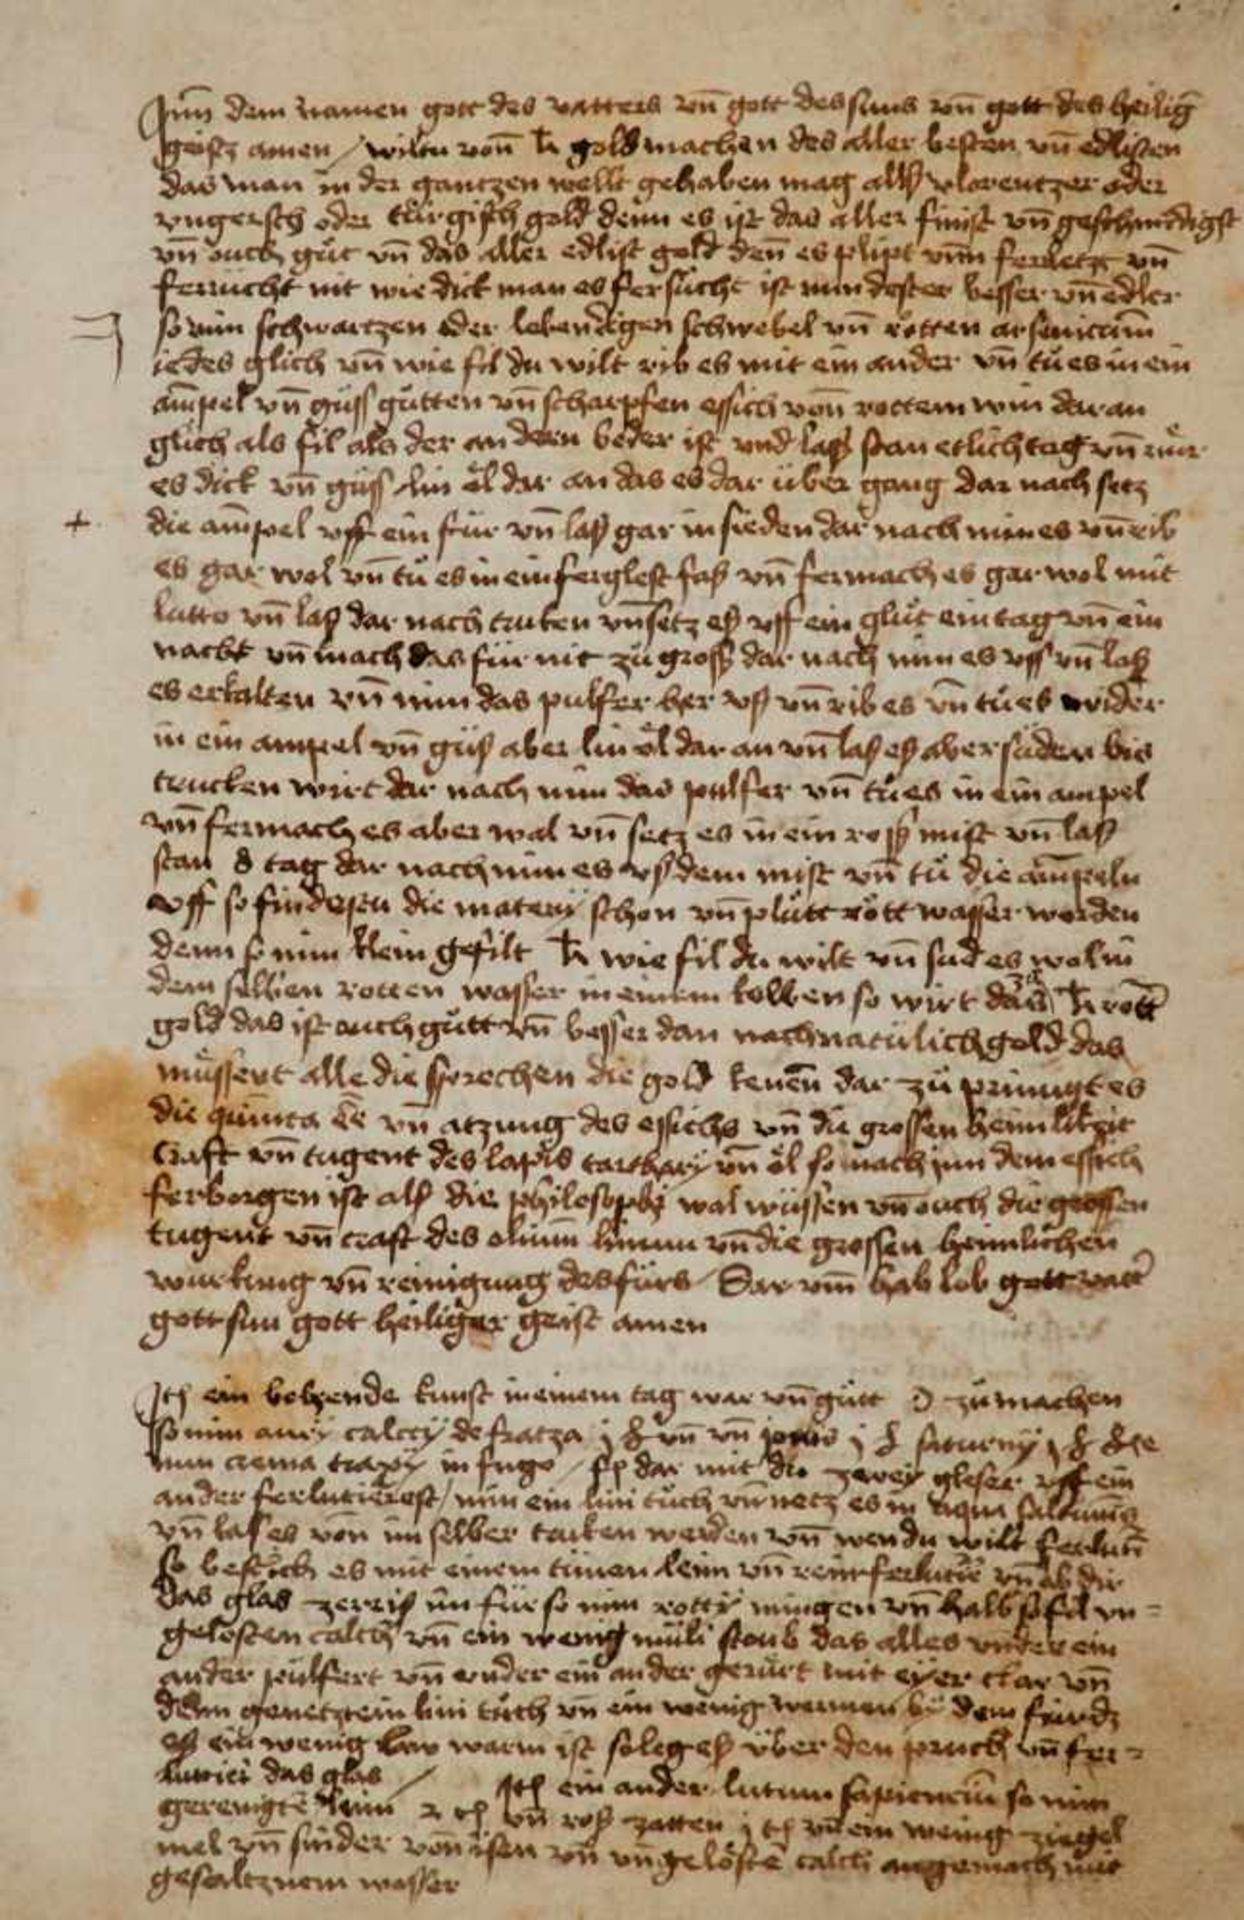 Jnn dem namen gott des vatters vn̄ gott des suns vn̄ gott des heiliḡ
geistz amen / wiltu von̄ ♄ gold machen des aller besten vn̄ edlisten
das man in der gantzen wellt gehaben mag alß vlorentzer oder
vngersch oder türgisch gold denn es ist das aller finist vn̄ geschmidigist
vn̄ ouch gůt vn̄ das aller edlist gold den̄ es plipt vnn fersetzt vn̄
ferrücht nit wie dick man es fersůcht ist nun dester besser vn̄ edler
so nim schwartzen oder lebendigen schwebel vn̄ rotten arsenicum̄
iedes glich vn̄ wie fil du wilt rib es mit ein ander vn̄ tů es in ein
am̄pel vn̄ güss gůtten vn̄ scharpfen essich von̄ rottem win dar an
glich als fil als der an dern beder ist vnd laß stan etlich tag vn̄ růr
es dick vn̄ güss lin öl dar an das es dar über gang dar nach setz
die am̄pel vff ein für vn̄ laß gar in sieden dar nach nim es vn̄ rib
es gar wol vn̄ tů es in ein ferglest faß vn̄ fermach es gar wol mit
lutto vn̄ laß dar nach truken vn̄ setz eß vff ein glůt ein tag vn̄ ein
nacht vn̄ mach das für nit zů gross dar nach nim es vff vn̄ laß
es erkalten vn̄ nim das pulfer her vß vn̄ rib es vn̄ tů es wider
in ein ampel vn̄ güß aber lin öl dar an vn̄ laß eß aber süden bis
trucken wirt dar nach nim das pulfer vn̄ tů es in ein ampel
vn̄ fermach es aber wal vn̄ setz es in ein roß mist vn̄ laß
stan 8 tag dar nach nim es vß dem mist vn̄ tů die am̄peln
vff so findestu die matery schon vn̄ plůtt rott wasser worden
denn so nim klein gefilt ♄ wie fil du wilt vn̄ sud es wol in
dem selben rotten wasser in einem kolben so wirt das ♄ rott
gold das ist ouch gůtt vn̄ besser dan nach natülich gold das
müssent alle die sprechen die gold kenen̄ dar zů pringt es
die quinta eē vn̄ atzung des essichs vn̄ die grossen heimlikeit
craft vn̄ tugent des lapis tarthary vn̄ öl so mach jnn dem essich
ferborgen ist alß die philesophi wal wüssen vn̄ ouch die grossen
tugent vn̄ craft des olium̄ linium vn̄ die grossen heimlichen
würkung vn̄ reinigung des fürs / Dar vm̄ hab lob gott vatt
gott sun gott heiliger geist amen
Jtꝫ ein behende kunst in einem tag war vn̄ gůtt ☽ zů machen
so nim calcy de vn̄ saturny
nim in fuge / dar mit du zwey gleser vff ein
ander ferlutierest / nim ein lini tůch vn̄ netz es in aqua
vn̄ laß es von im selber truken werden vn̄ wen du wilt
so bestrich es mit einem leim vn̄ vn̄ ob dir
das glas zerriß im für so nim rotty mingen vn̄ halb so fil vn=
gelosten calch vn̄ ein wenig müli stoub das alles vnder ein
ander pülfert vn̄ vnder ein ander gerürt mit eyer clar vn̄
denn genetzt ein lini tůch vn̄ ein wenig wermen by dem für dz
eß ein wenig law warm ist so leg eß über den pruch vn̄ fer=
lutrier das glas / Jtꝫ ein ander lutum sapiencium so nim
gereingtē leim 2 vn̄ roß zatten j vn̄ ein wenig ziegel
mel vn̄ sinder von isen vn̄ vn gelöstē calch angemach mit
gesaltznem wasser